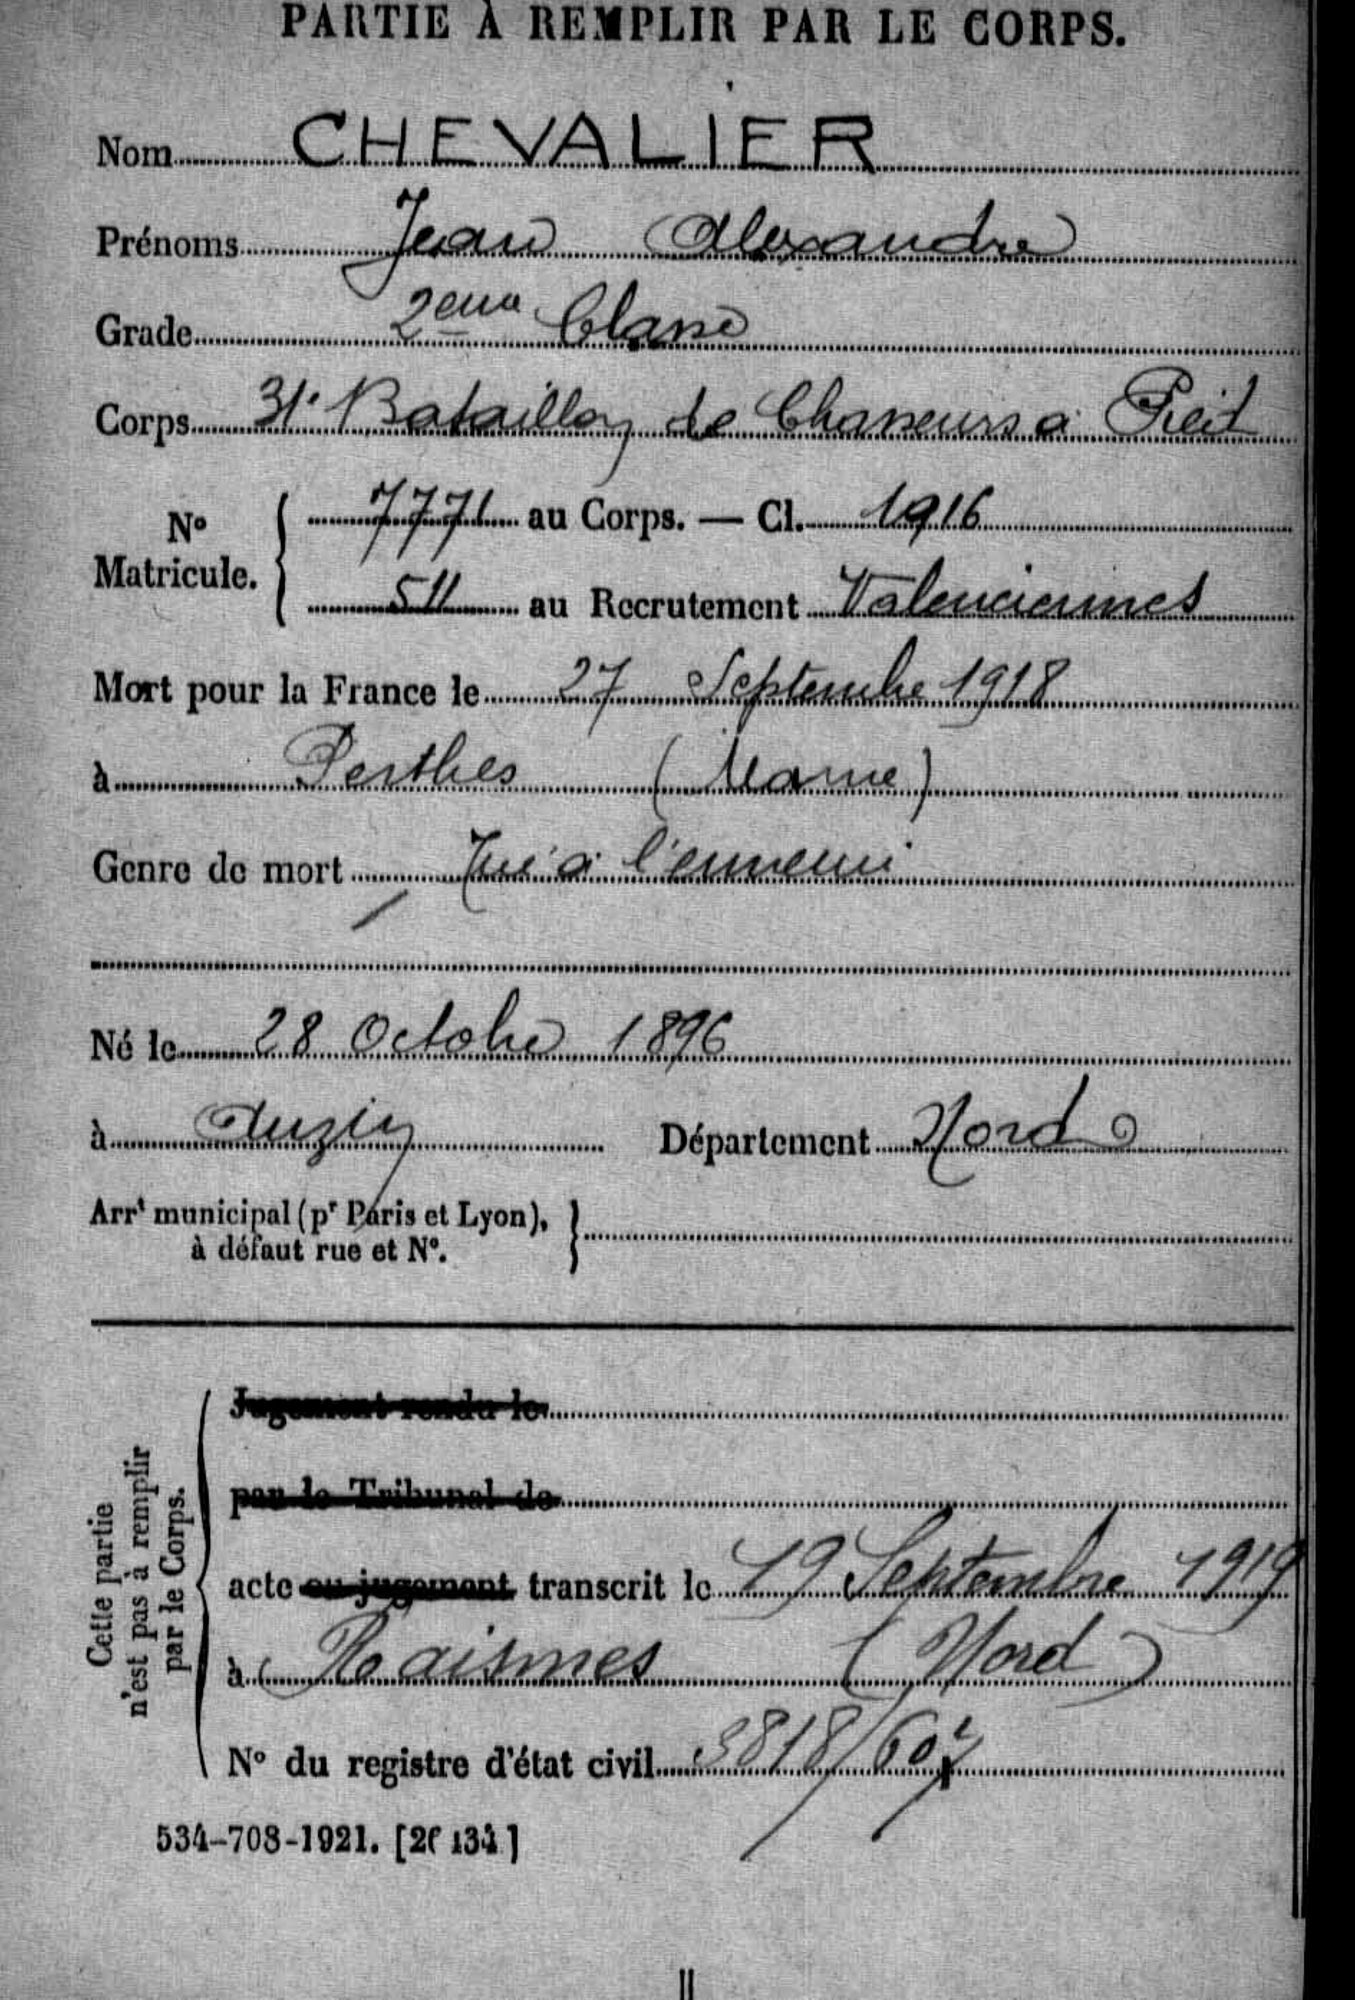 PARTIE À REMPLIR PAR LE CORPS.
Nom CHEVALIER
Prénoms Jean Alexandre
Grade 2eme Classe
Corps 31e Bataillon de Chasseurs à Pied
No Matricule. { 7771 au Corps. — Cl. 1916
511 au Recrutement Valenciennes
Mort pour la France le 27 Septembre 1918
à Perthes (Marne)
Genre de mort Tué à l'ennemi
Né le 28 Octobre 1896
à Anzin Département Nord
Arrt municipal (pr Paris et Lyon), }
à défaut rue et No.
Cette partie
n'est pas à remplir
par le Corps.
Jugement rendu le
par le Tribunal de
acte ou jugement transcrit le 19 Septembre 1919
à Raismes (Nord)
No du registre d'état civil 3818/
534-708-1921. [